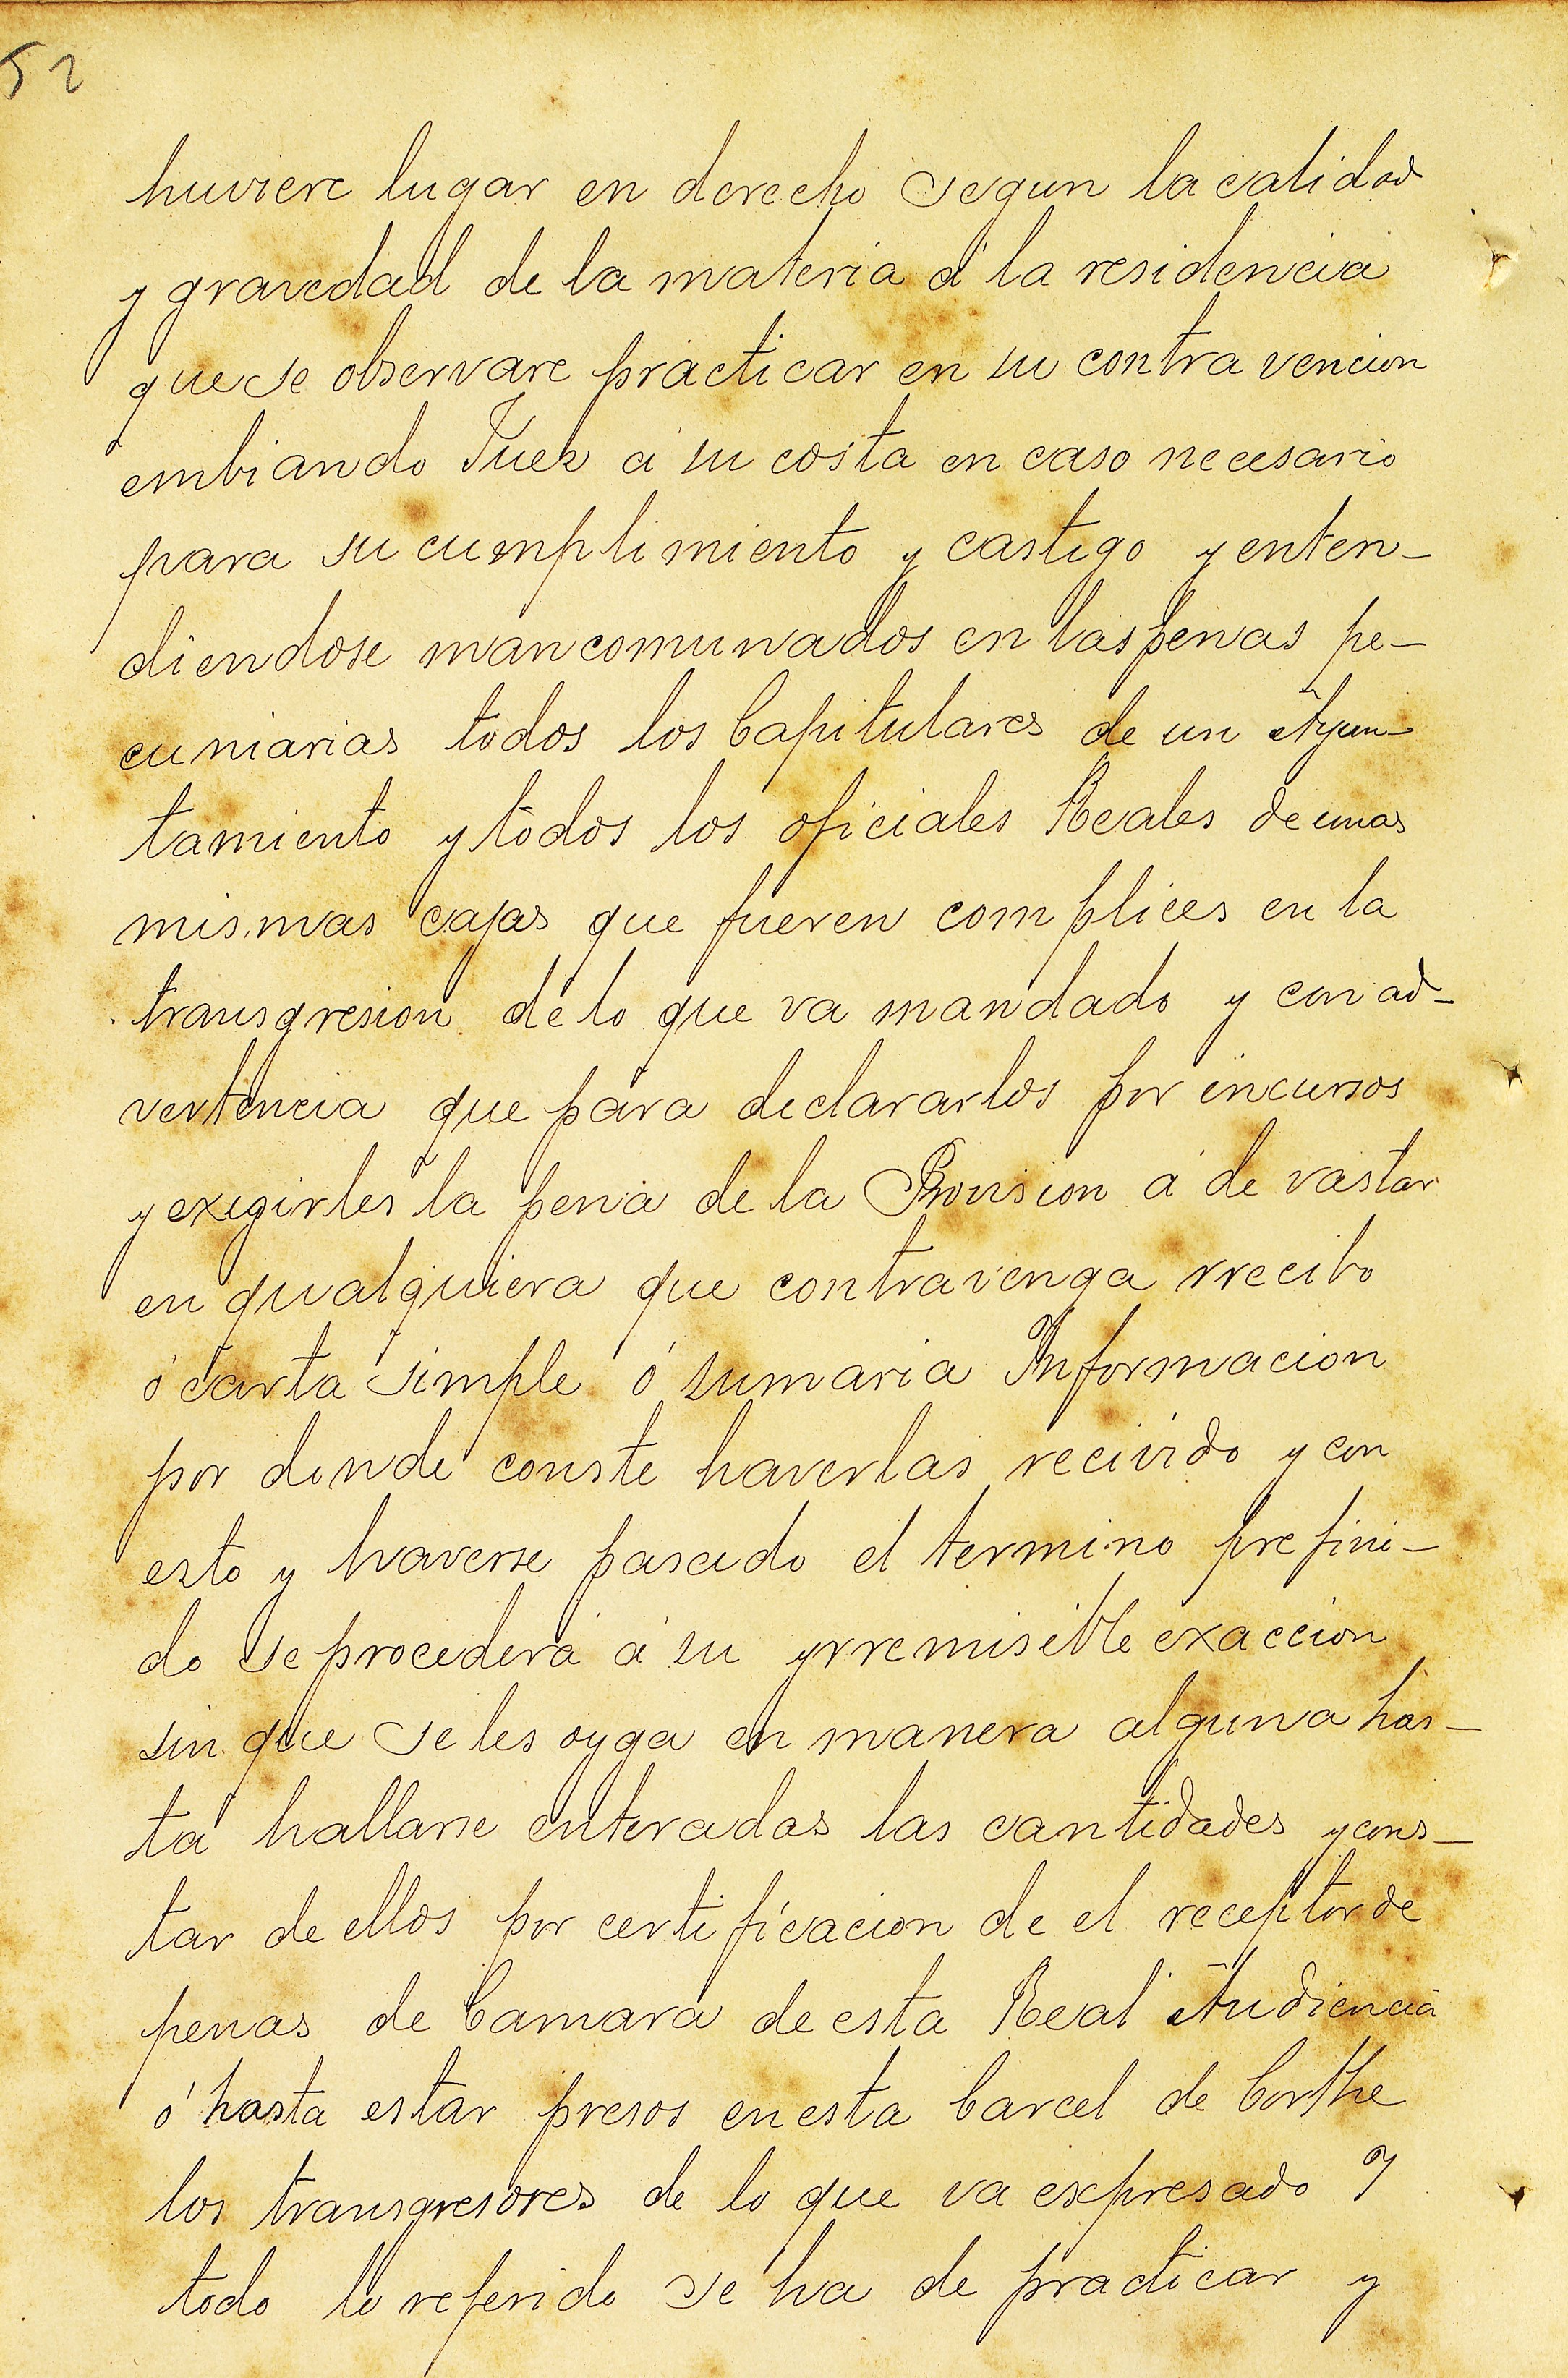 52
huviere lugar en derecho segun la calidad
y gravedad de la materia á la residencia
que se observare practicar en su contra vencion
embiando Juez á su costa en caso necesario
para su cumplimiento y castigo y enten-
diendose mancomunados en las penas pe-
cuniarias todos los Capitulares de un Ayun-
tamiento y todos los oficiales Reales de unas
mismas cajas que fueren complices en la
transgresion de lo que va mandado y con ad-
vertencia que para declararlos por incursos
y exegirles la pena de la Provision á de vastar
en qualquiera que contravenga rrecibo
ó carta simple ó sumaria Informacion
por donde conste haverlas recivido y con
esto y haverse pasado el termino prefini-
do se procederá á su yrremisible exaccion
sin que se les oyga en manera alguna has-
ta hallarse enteradas las cantidades y cons-
tar de ellos por certificacion de el receptor de
penas de Camara de esta Real Audiencia
ó hasta estar presos en esta Carcel de Corthe
los transgresores de lo que va expresado Y
todo lo referido se ha de practicar y